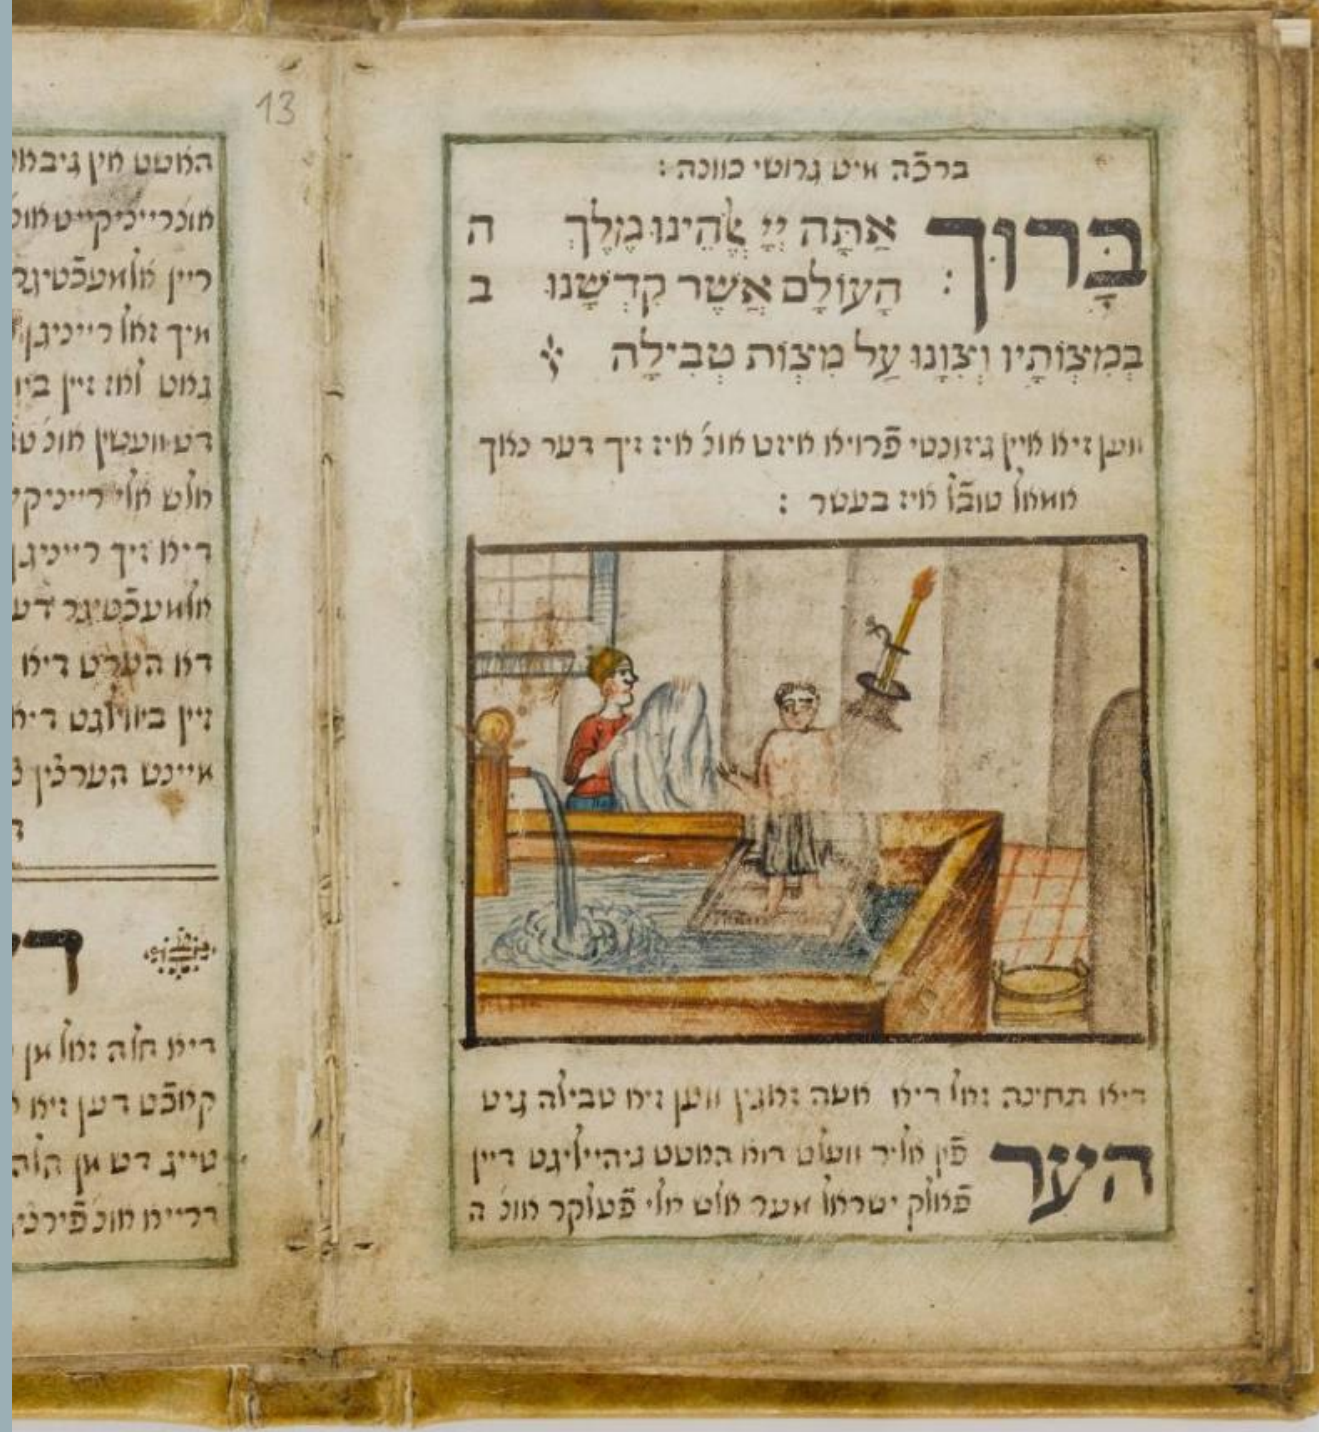 ברכֿה מיט גרוטי כוונה :
בָּרוּךְ : אַתָּה יְיָ אֱלֹהֵינוּ מֶלֶךְ ה
הָעוֹלָם אֲשֶׁר קִדְשָׁנוּ ב
בְּמִצְוֹתָיו וְצִוָנוּ עַל מִצְוֹת טְבִילָה
ווען זיא איין גיזונטי פֿרויא איזט אונ' איז זיך דער נאך
אמאל טובֿל איז בעטר :
דיא תחינה זאל דיא אשה זאגין ווען זיא טבילה גיט
הער פֿין אליר וועלט דוא האסט גיהייליגט דיין
פֿאלק ישראל מער אלש אלי פֿעלקר אונ' ה
13
האסט אין
אונרייניקייט אונ'
ריין אלמעכֿטיגר
מיך זאל רייניגן
גאט לאז זיין
אונ'
אלש אלי
דיא זיך רייניגן
אלמעכֿטיגר
דא הערט דיא
זיין דיא
דיא חלה זאל מן
קאכֿט דען זיא
טייג דש מן חלה
דרייא אונ'